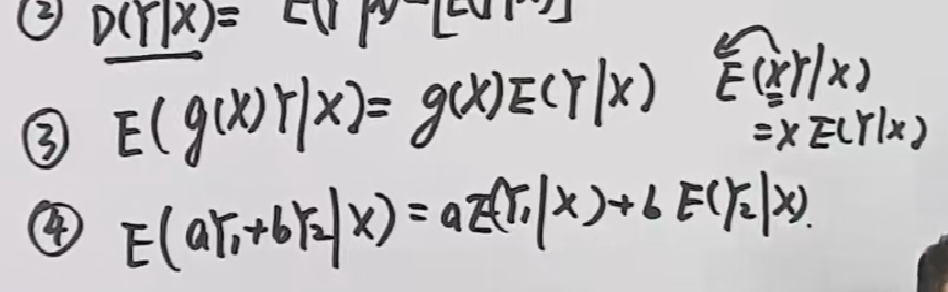 ② D(Y|X)=
③ E(g(X)Y|X)= g(X)E(Y|X) E(XY|X)
=X E(Y|X)
④ E(aY₁+bY₂|X)=aE(Y₁|X)+b E(Y₂|X).